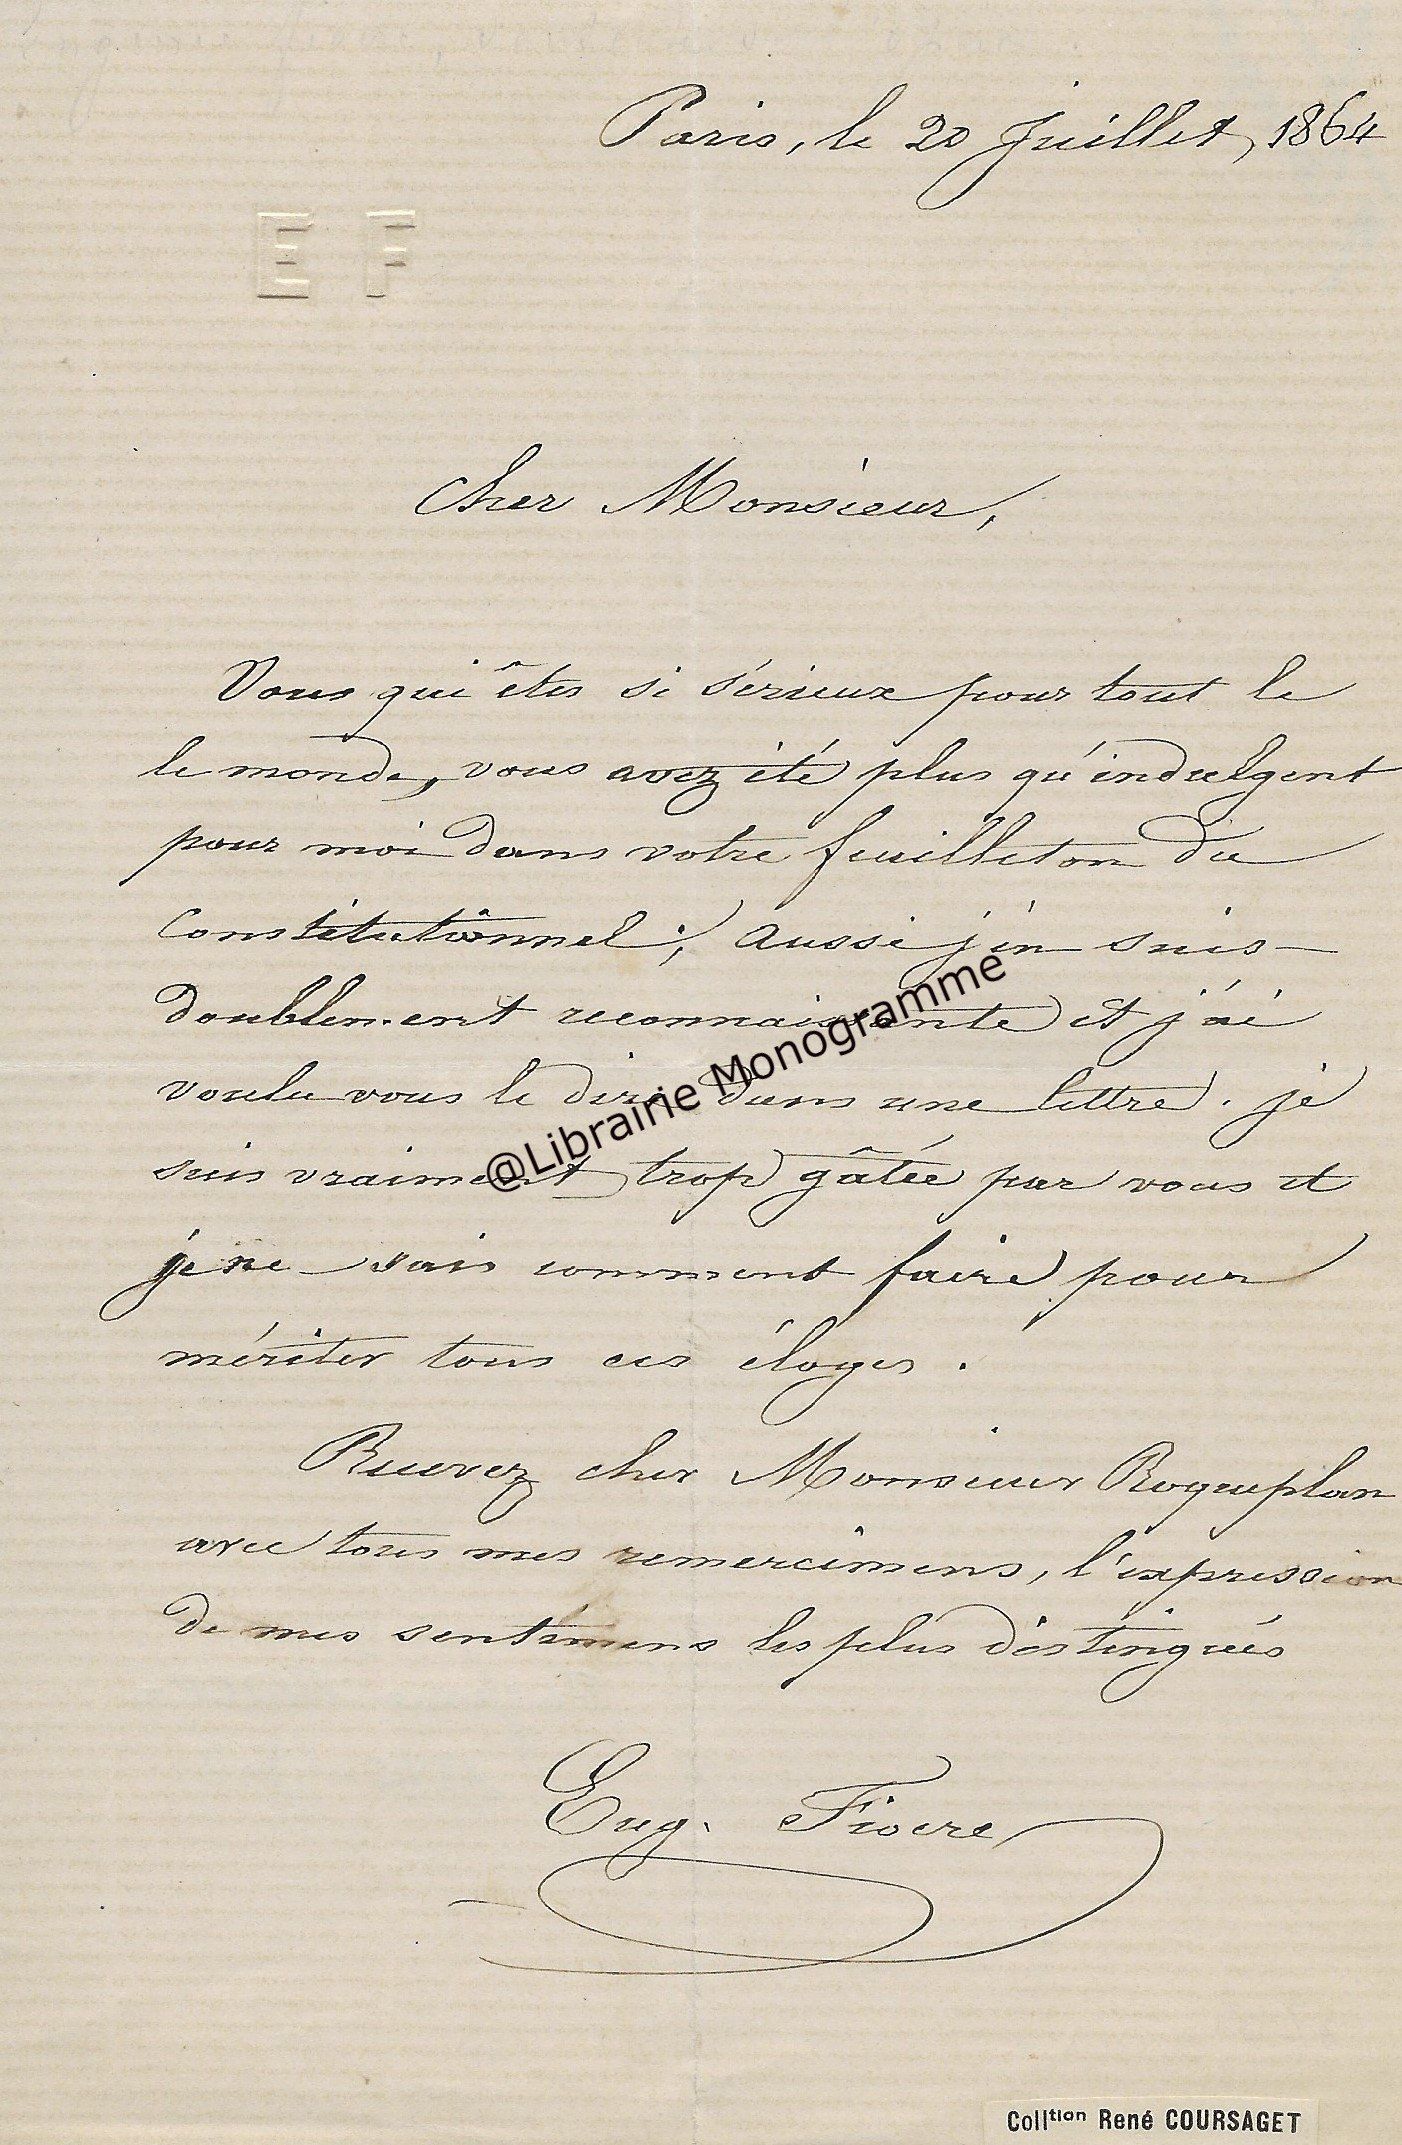 Paris, le 20 Juillet, 1864
E F
Cher Monsieur,
Vous qui êtes si sérieux pour tout le
le monde, vous avez été plus qu'indulgent
pour moi dans votre feuilleton du
Constitutionnel ; aussi j'en suis
doublement reconnaissante et j'ai
voulu vous le dire dans une lettre. je
suis vraiment trop gâtée par vous et
je ne sais comment faire pour
mériter tous ces éloges.
Recevez cher Monsieur Roqueplan
avec tous mes remercimens, l'expression
de mes sentimens les plus distingués
Eug. Fiocre
@Librairie Monogramme
Colltion René COURSAGET